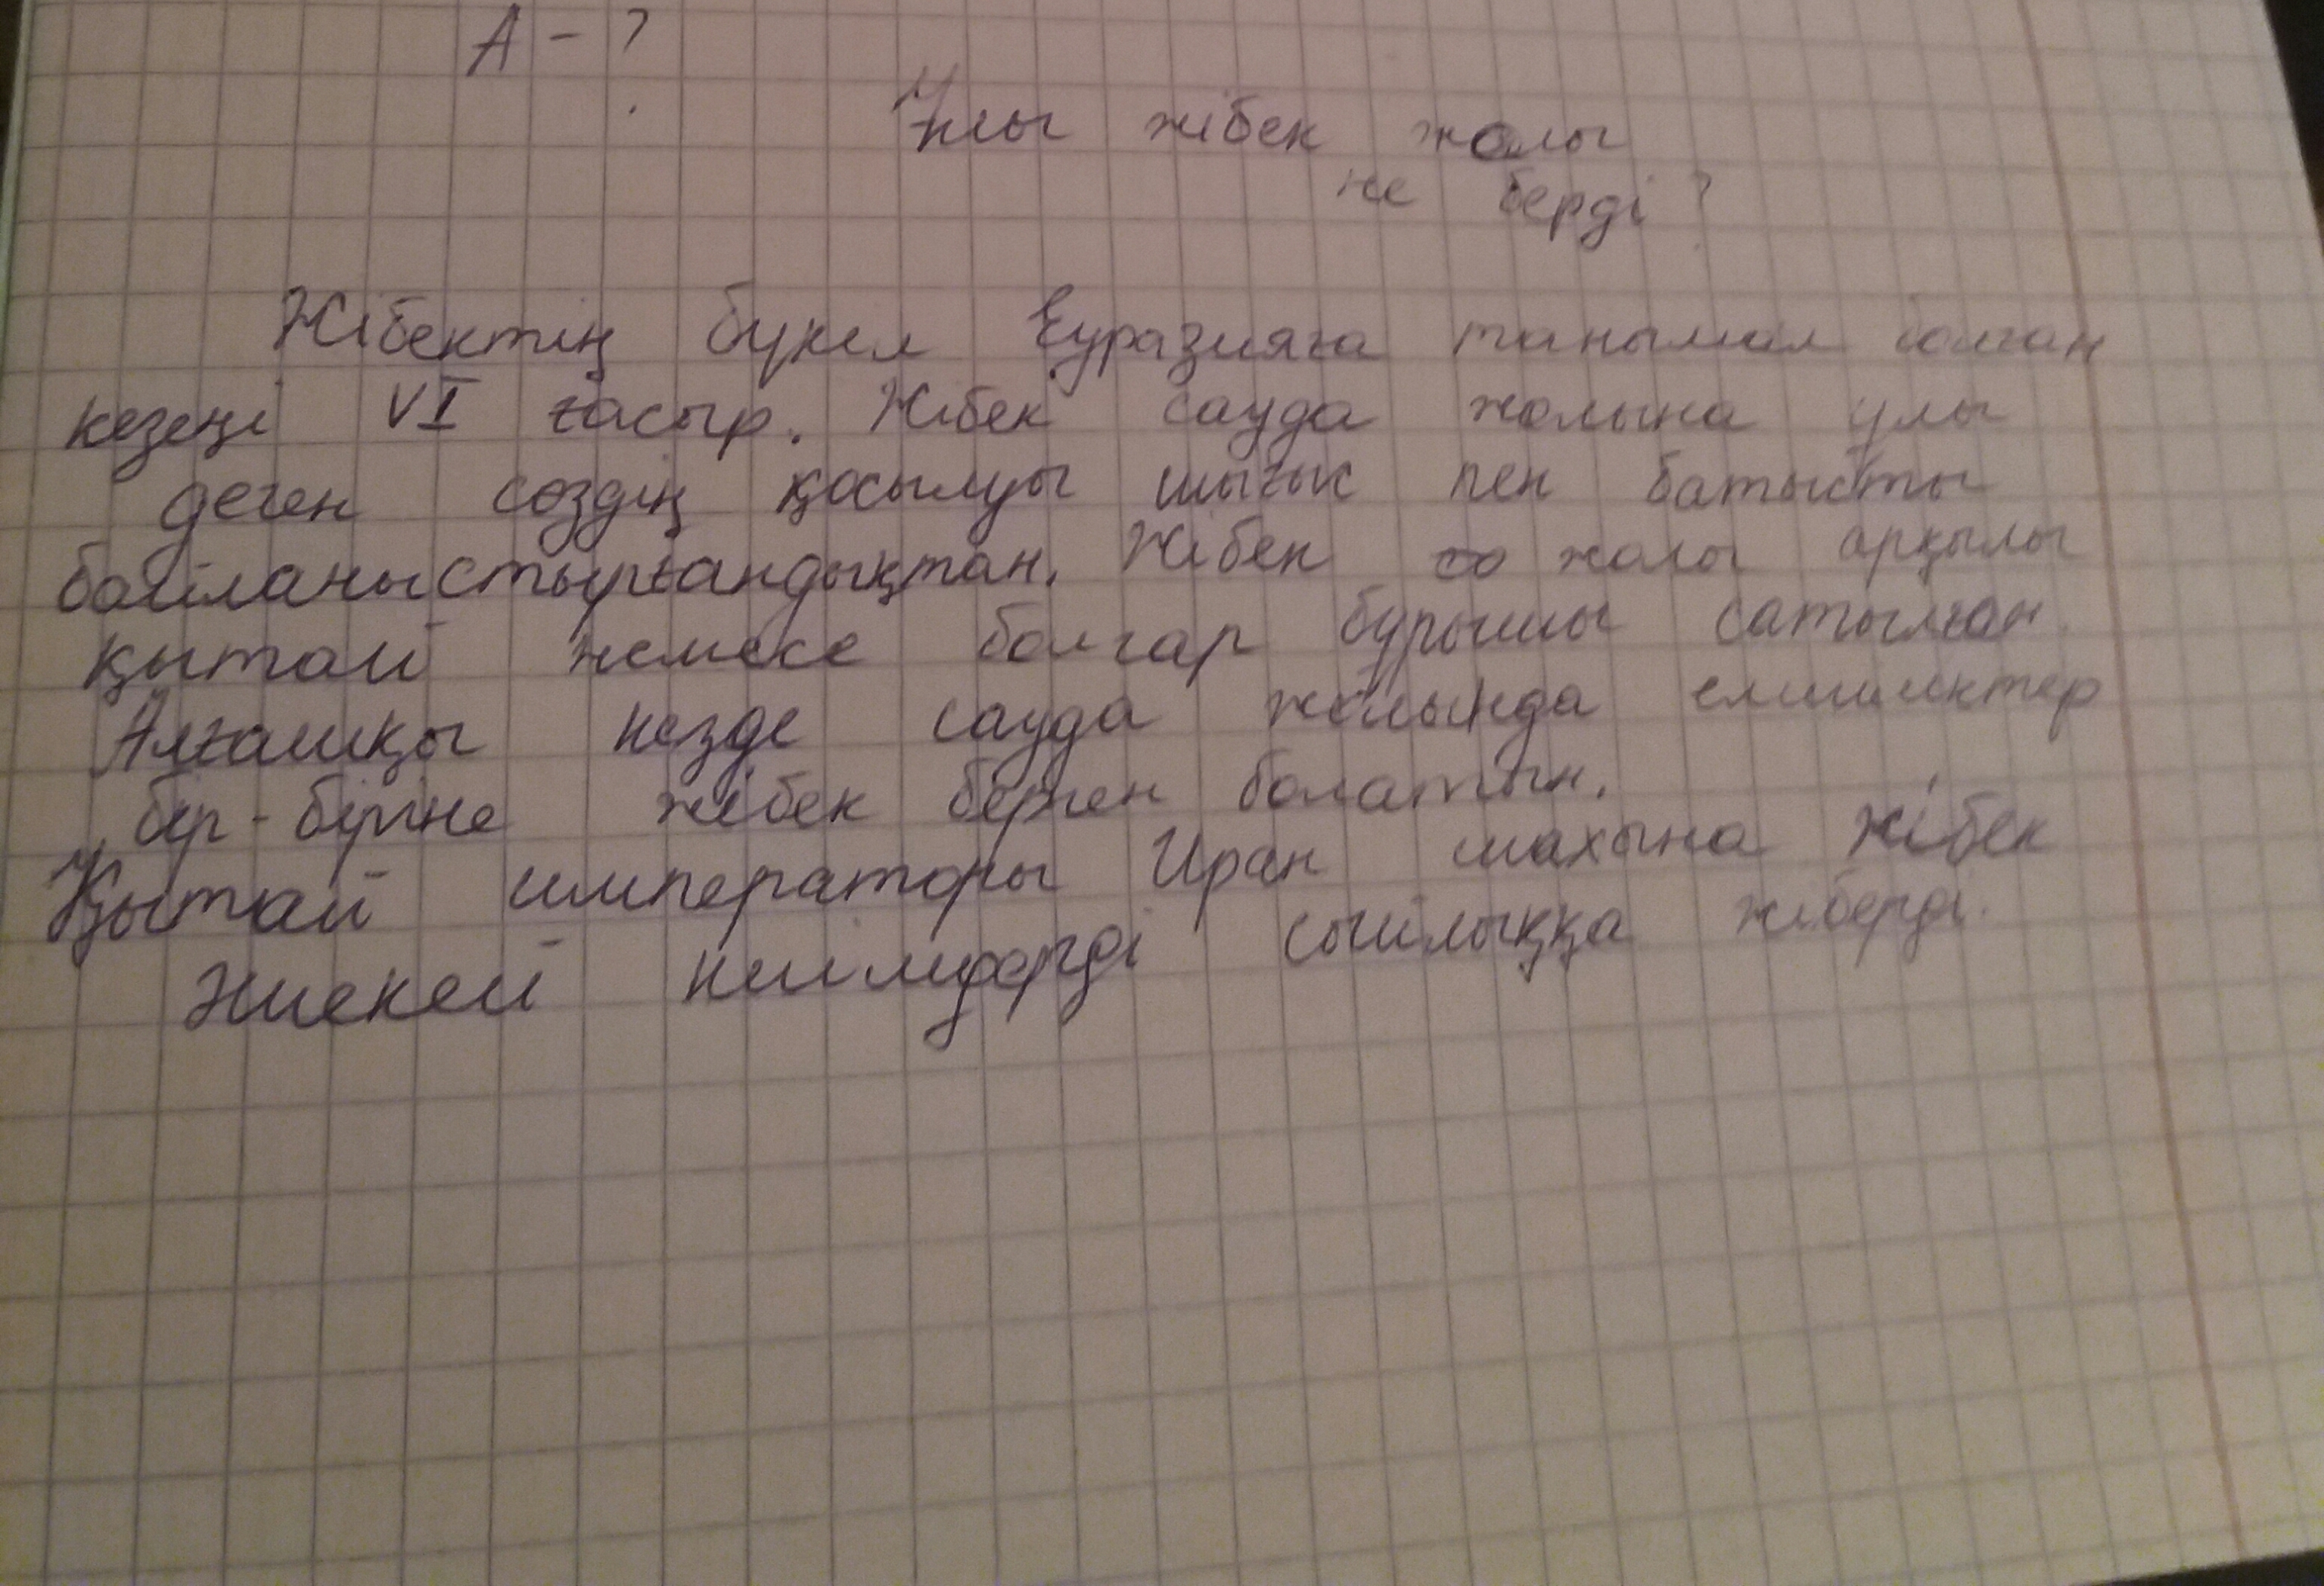 А - ?
Ұлы жібек жолы
не берді?
Жібектің бүкіл Еуразияға танымал болған
кезеңі VI ғасыр. Жібек сауда жолына ұлы
деген сөздің қосылуы шығыс пен батысты
байланыстырғандықтан. Жібек жолы арқылы
қытай немесе болгар бұрышы сатылған.
Алғашқы кезде сауда жолында елшиліктер
бір-біріне жібек берген болатын.
Қытай императоры Иран шахына жібек
жиекей киімдерді сыйлыққа жіберді.